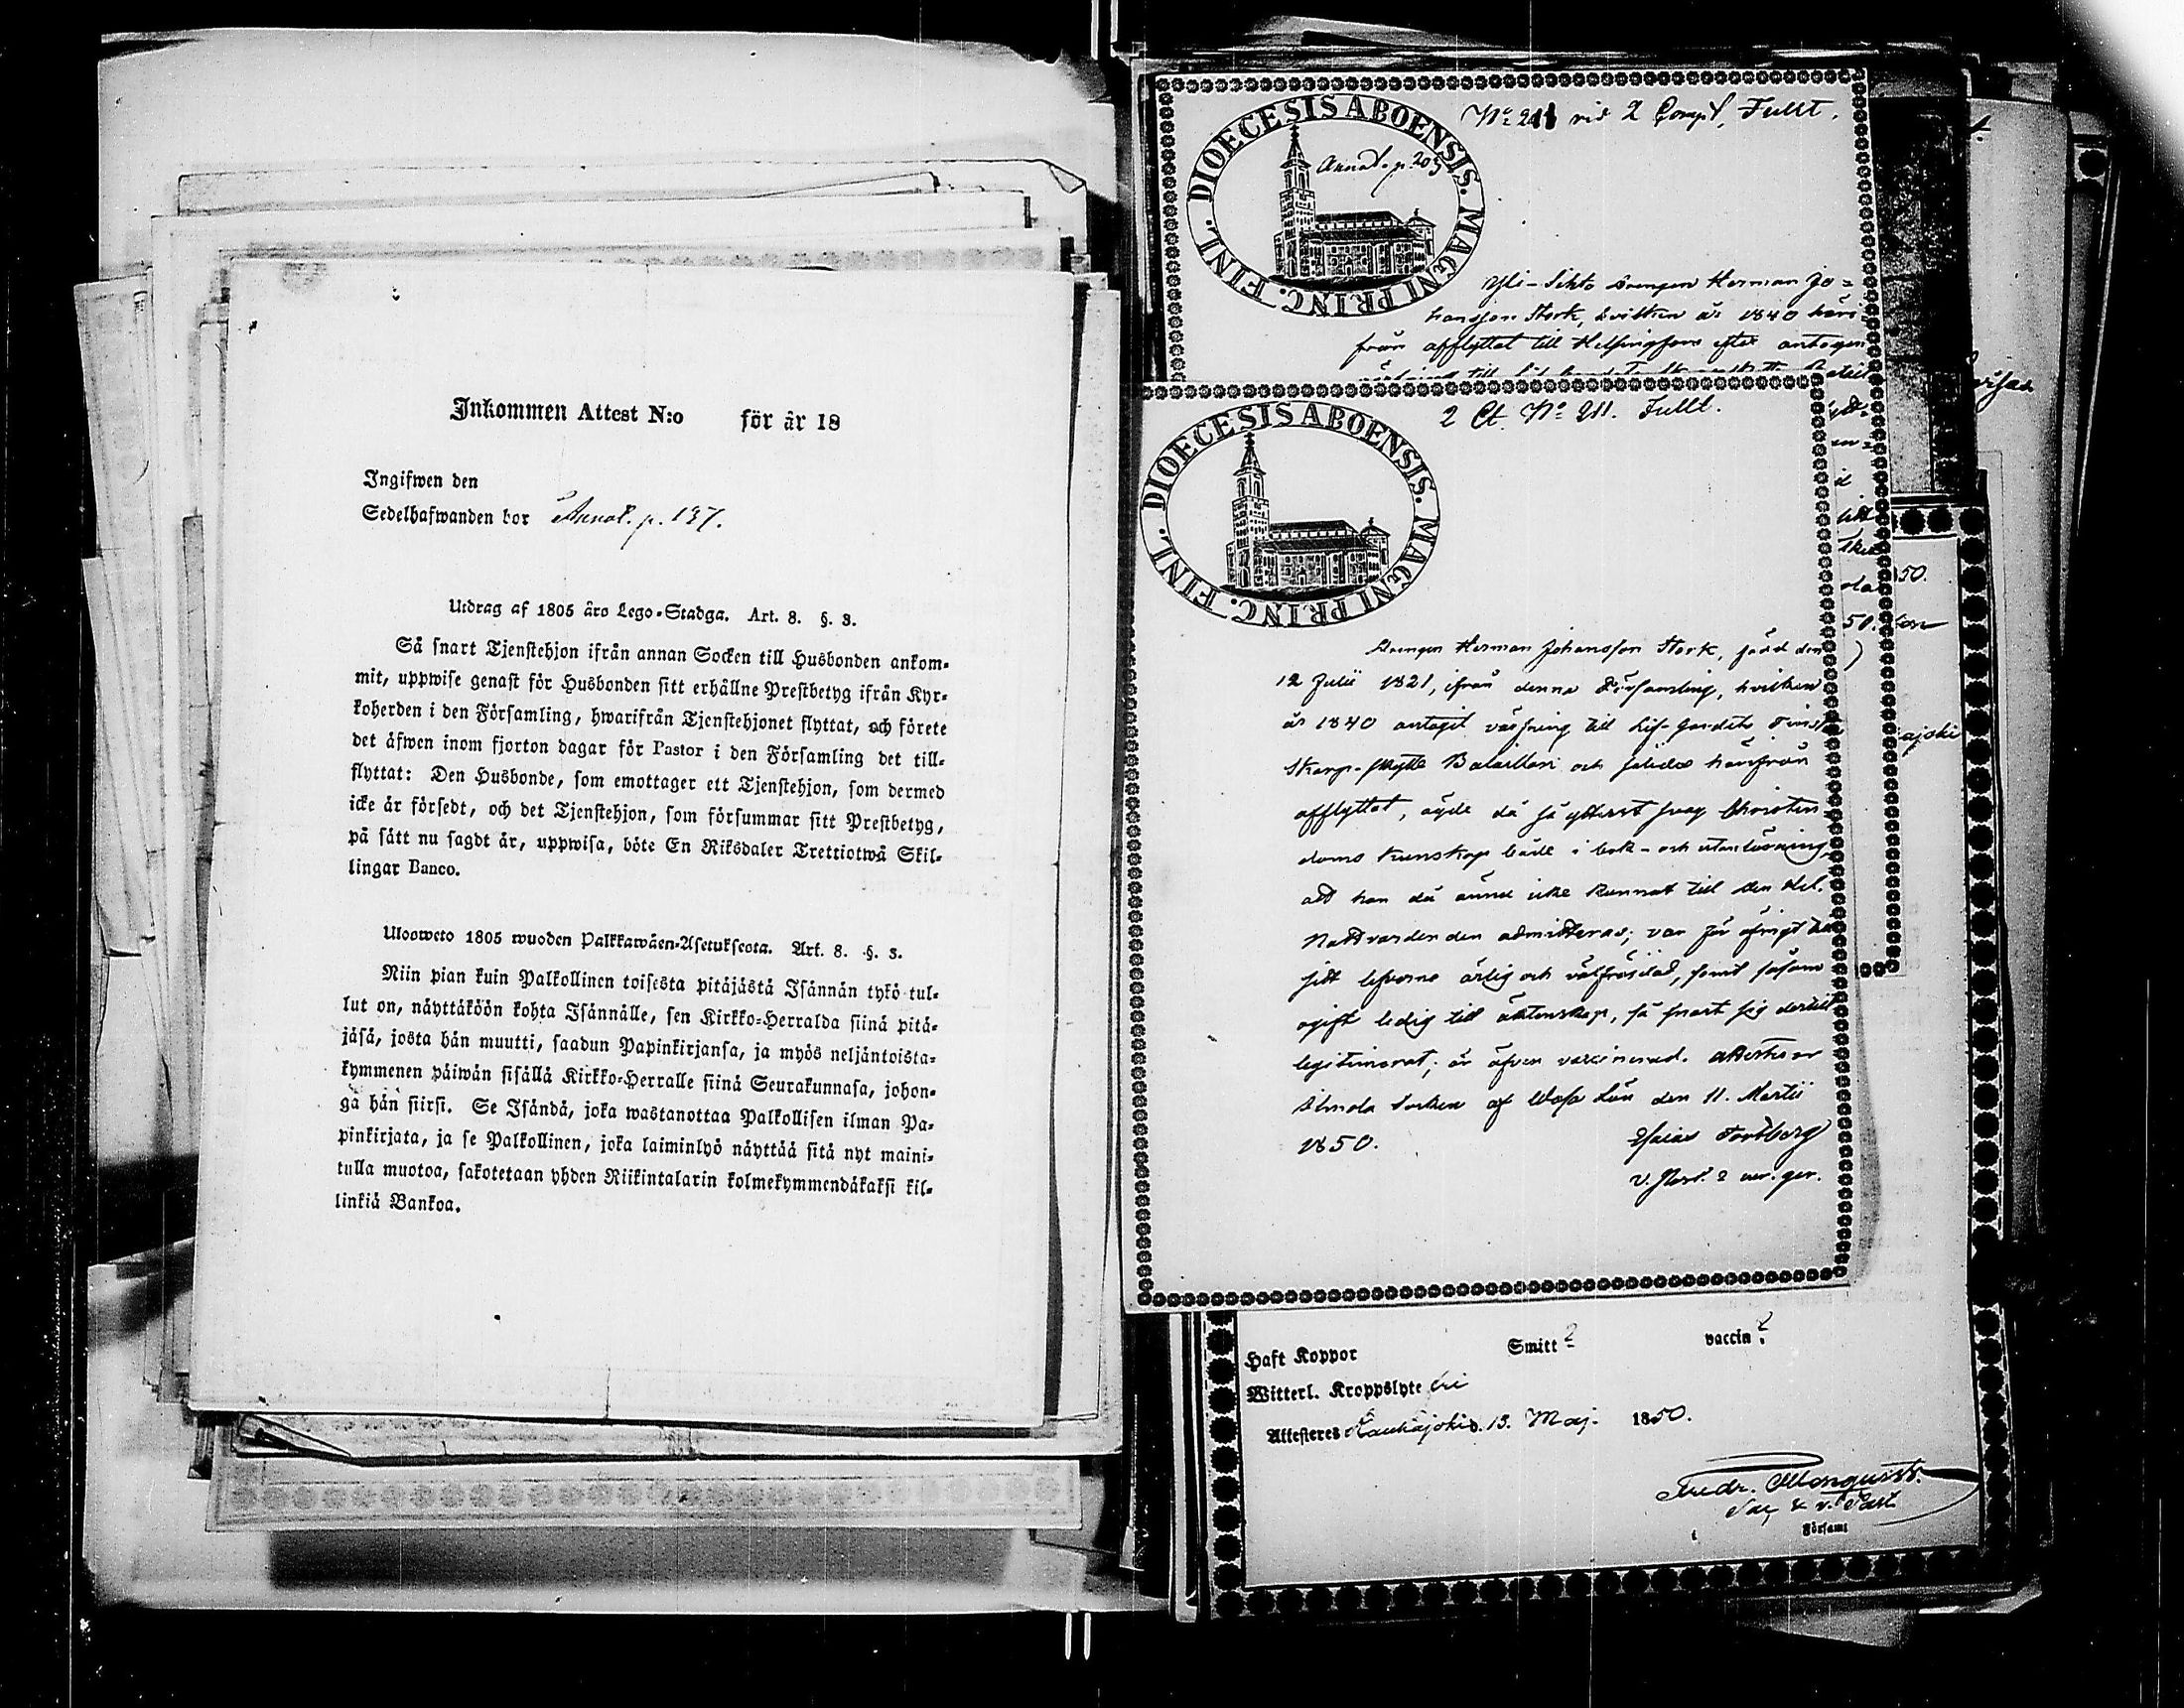 Inkommen Attest N:o för år 18
Ingifwen den
Sedelhafwanden bor Annot. p. 137.
Utdrag af 1805 åro Lego-Stadga. Art. 8. §. 3.
Så snart Tjenstehjon ifrån annan Socken till Husbonden ankom-
mit, uppwise genast för Husbonden sitt erhållne Prestbetyg ifrån Kyr-
koherden i den Församling, hwarifrån Tjenstehjonet flyttat, och förete
det äfwen inom fjorton dagar för Pastor i den Församling det till-
flyttat: Den Husbonde, som emottager ett Tjenstehjon, som dermed
icke är försedt, och det Tjenstehjon, som försummar sitt Prestbetyg,
på sätt nu sagdt är, uppwisa, böte En Riksdaler Trettiotwå Skil-
lingar Banco.
Ulosweto 1805 wuoden Palkkawäen-Asetuksesta. Art. 8. §. 3.
Niin pian kuin Palkollinen toisesta pitäjästä Isännän tykö tul-
lut on, näyttäköön kohta Isännälle, sen Kirkko-Herralda siinä pitä-
jäsä, josta hän muutti, saadun Papinkirjansa, ja myös neljäntoista-
kymmenen päiwän sisällä Kirkko-Herralle siinä Seurakunnasa, johon-
ga hän siirsi. Se Isändä, joka wastanottaa Palkollisen ilman Pa-
pinkirjata, ja se Palkollinen, joka laiminlyö näyttää sitä nyt maini-
tulla muotoa, sakotetaan yhden Riikintalarin kolmekymmendäkaksi kil-
linkiä Bankoa.
DIOECESIS ABOENSIS. MAGNI PRINC. FINL.
Annot. p. 203
No 211 vid 2 Comp. Fullt.
Yli-Sihto Drengen Herman Jo=
hansson Stork, hvilken år 1840 häri=
från afflyttat till Helsingfors efter antagen
DIOECESIS ABOENSIS. MAGNI PRINC. FINL.
2 Ct. No 211. Fullt.
Drengen Herman Johansson Stork, född den
12 Julii 1821, ifrån denna Församling, hvilken
år 1840 antagit värfning till Lif-Gardets Finska
Skarp-skytte Bataillon och således härifrån
afflyttat, ägde då så ytterst svag Christen
doms kunskap både i bok- och utanläsning,
att han då ännu icke kunnat till den Hel.
Nattvarden admitteras; var för öfrigt till
sitt lefverne ärlig och välfräjdad, samt såsom
ogift ledig till äktenskap, så snart sig dertill
legitimerat; är äfven vaccinerad. Attesterar
Ilmola Socken af Wasa Län den 11. Martii
1850.
Esaias Fortberg
50.
ajoki
Haft Koppor Smitt vaccin
Witterl. Kroppslyte fri
Attesteres Kauhajoki d. 13. Maj. 1850.
Fredr. Monquist.
Sac. & v. Past.
Församl